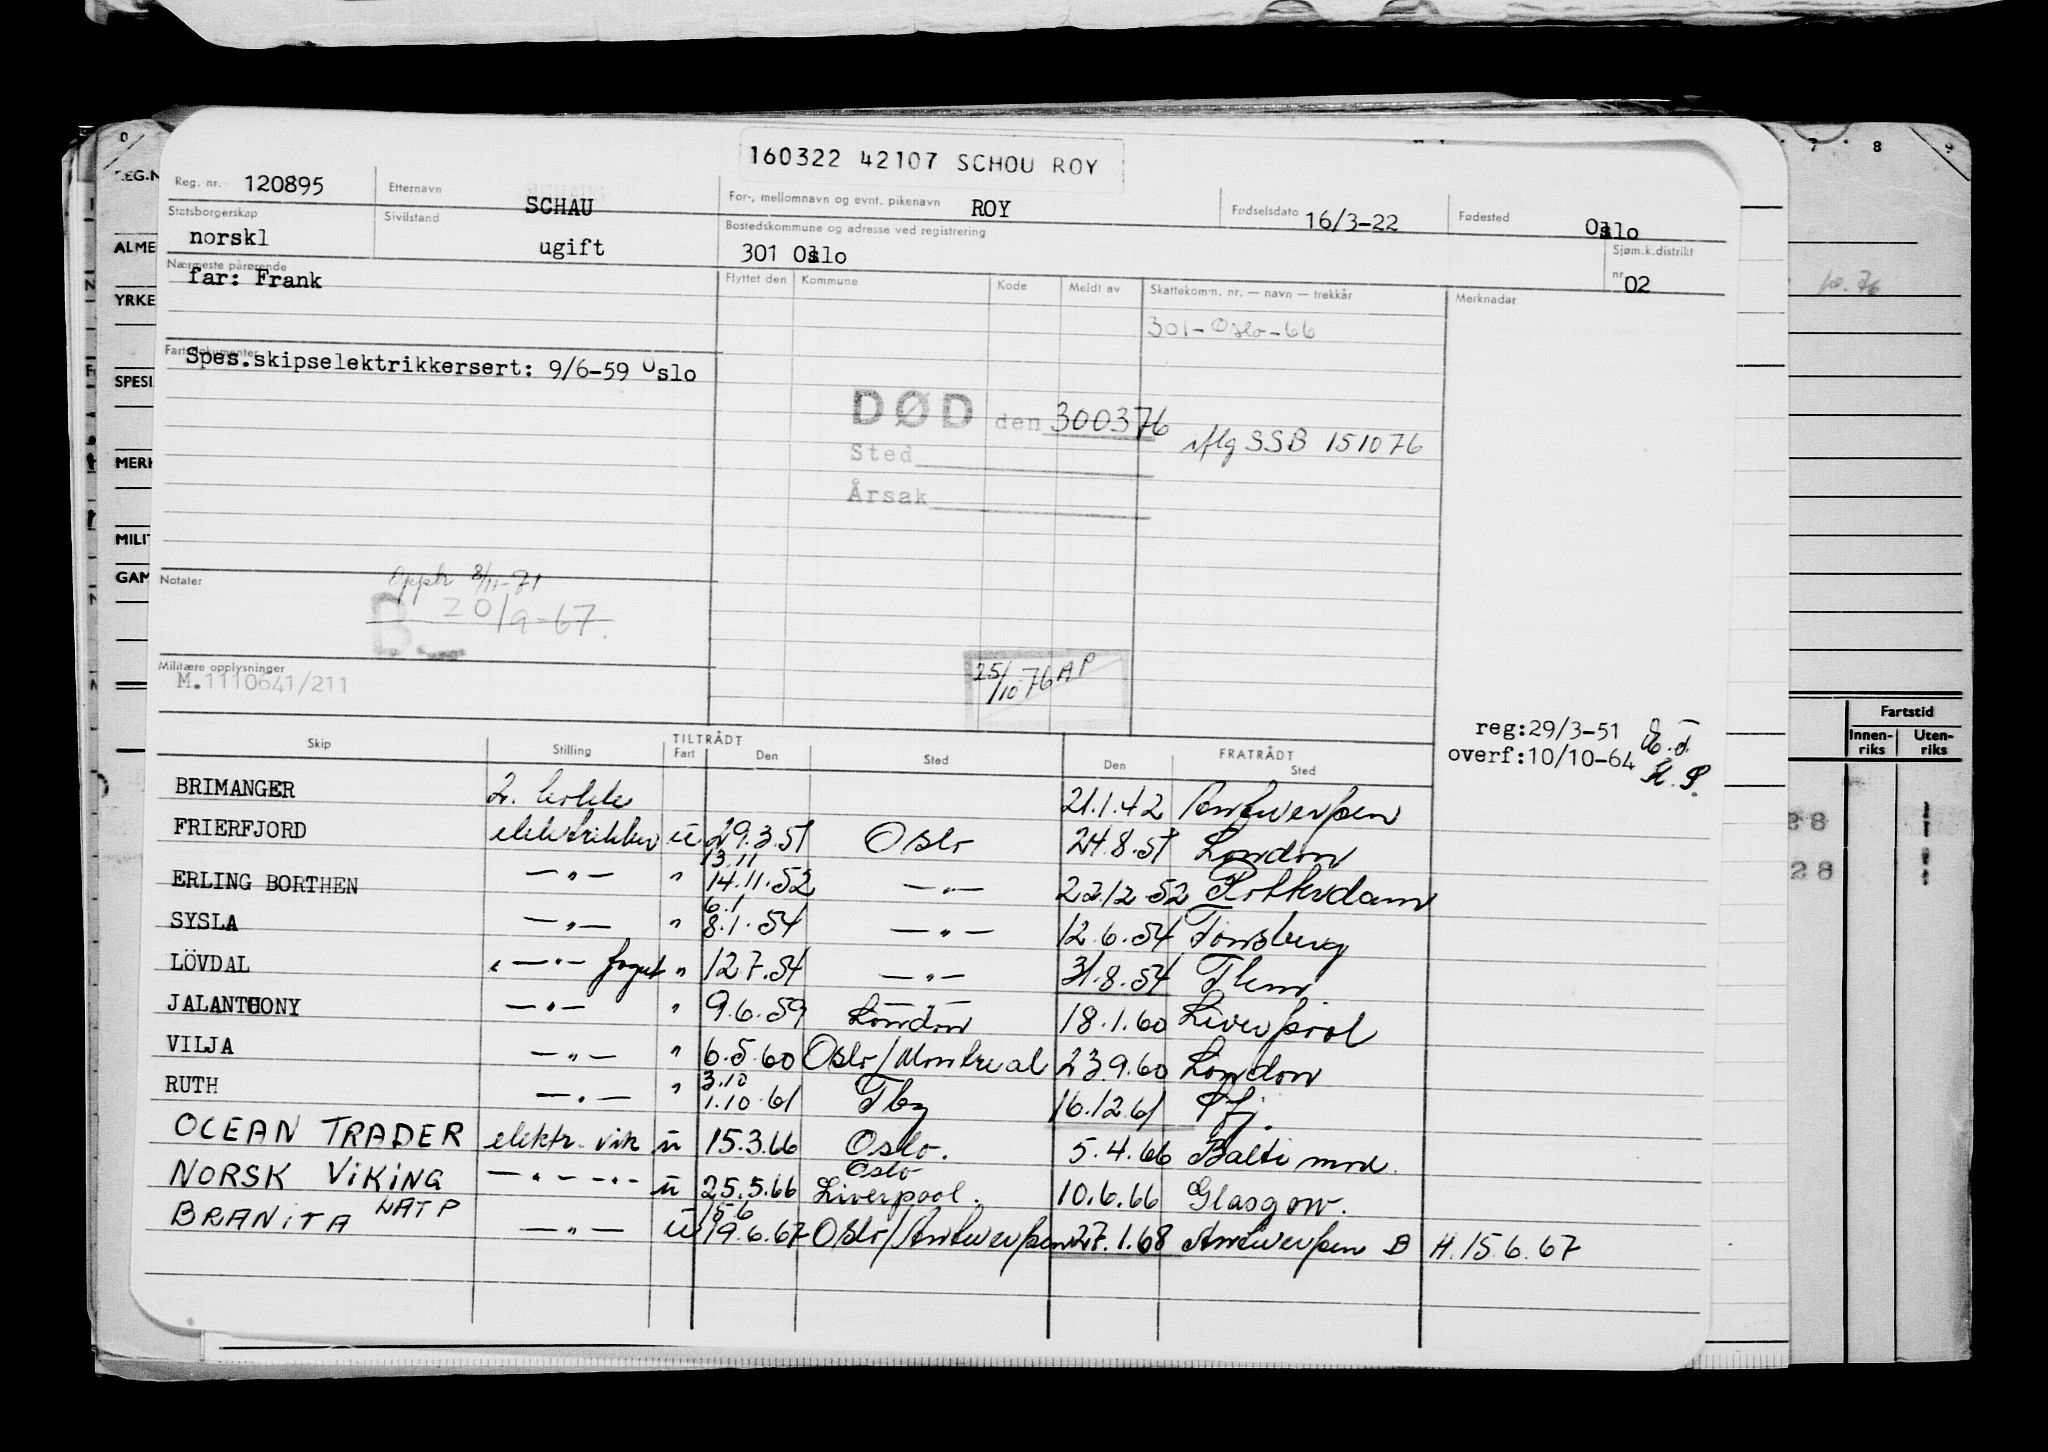 160322 42107 SCHOU ROY
Reg. nr. 120895 Etternavn SCHAU For-, mellomnavn og evnt. pikenavn ROY Fødselsdato 16/3-22 Fødested Oslo
Statsborgerskap norskl Sivilstand ugift Bostedskommune og adresse ved registrering 301 Oslo Sjøm.k.distrikt nr. 02
Nærmeste pårørende far: Frank
Flyttet den Kommune Kode Meldt av Skattekomm. nr. — navn — trekkår Merknader
301-Oslo-66
Fartsdokumenter
Spes.skipselektrikkersert: 9/6-59 Oslo
DØD den 300376 iflg SSB 151076
Sted
Årsak
Notater
Opph 8/11-71
B. 20/9-67.
Militære opplysninger
M.1110641/211
25/10 76 AP
reg:29/3-51
overf:10/10-64
Skip Stilling TILTRÅDT Fart Den Sted FRATRÅDT Den Sted
BRIMANGER 2. kokk 21.1.42 Antwerpen
FRIERFJORD elektrikker u 29.3.51 Oslo 24.8.51 London
13.11
ERLING BORTHEN —"— " 14.11.52 —"— 22.12.52 Rotterdam
6.1
SYSLA —"— " 8.1.54 —"— 12.6.54 Tønsberg
LÖVDAL —"— " 12.7.54 —"— 31.8.54
JALANTHONY —"— " 9.6.59 London 18.1.60 Liverpool
VILJA —"— " 6.5.60 Oslo/Montreal 23.9.60 London
3.10
RUTH —"— " 1.10.61 Tbg 16.12.61
OCEAN TRADER elektr. vik u 15.3.66 Oslo. 5.4.66 Baltimore.
Oslo
NORSK VIKING —"— —"— u 25.5.66 Liverpool. 10.6.66 Glasgow.
15.6
BRANITA NATP —"— u 19.6.67 Oslo/Antwerpen 27.1.68 Antwerpen B H.15.6.67
0
REG.N
ALME
YRKE
SPESI
MERK
MILIT
GAM
7 8 9
10.76
Fartstid
Innenriks Utenriks
28
28